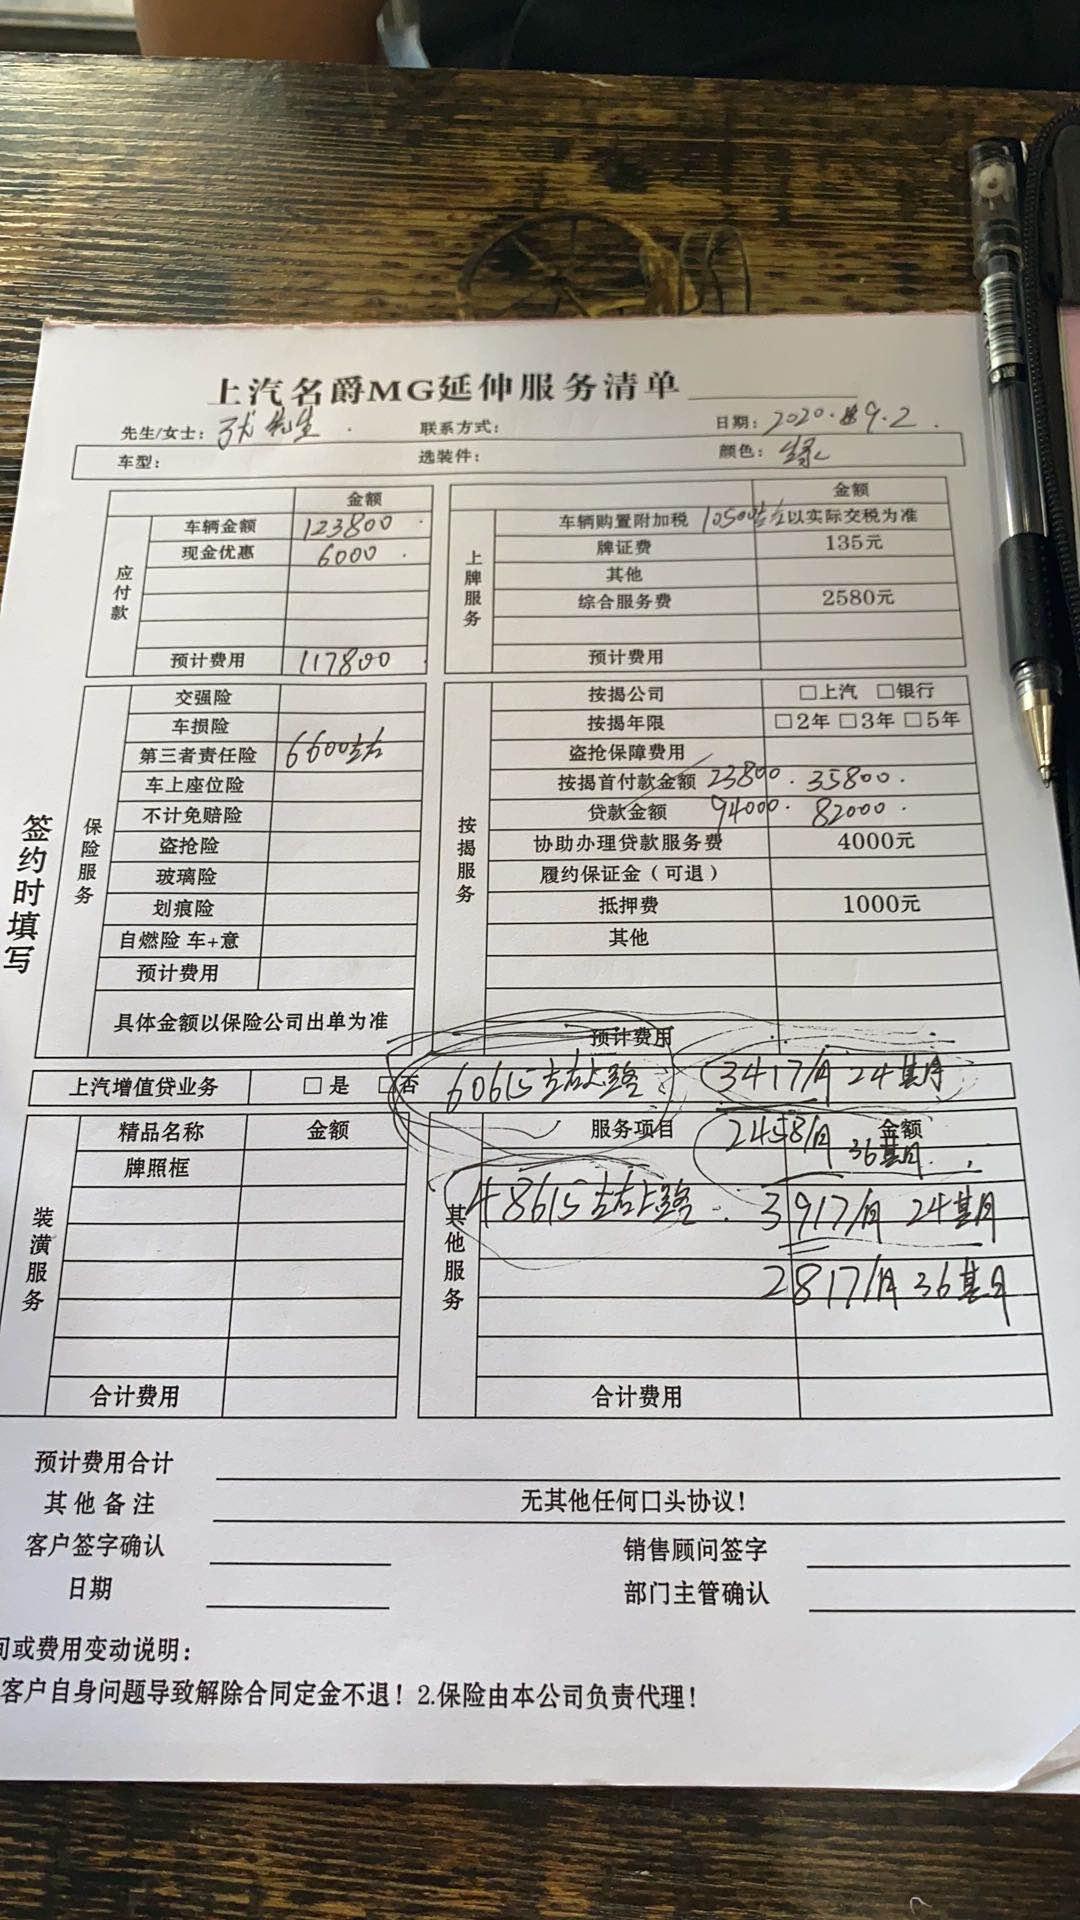 上汽名爵MG延伸服务清单
先生/女士：张先生 联系方式： 日期：2020.9.2
车型： 选装件： 颜色：绿
签约时填写
应付款
金额
车辆金额 123800
现金优惠 6000
预计费用 117800
上牌服务
金额
车辆购置附加税 10500左右以实际交税为准
牌证费 135元
其他
综合服务费 2580元
预计费用
保险服务
交强险
车损险
第三者责任险 6600左右
车上座位险
不计免赔险
盗抢险
玻璃险
划痕险
自燃险 车+意
预计费用
具体金额以保险公司出单为准
按揭服务
按揭公司 □上汽 □银行
按揭年限 □2年 □3年 □5年
盗抢保障费用
按揭首付款金额 23800. 35800.
贷款金额 94000. 82000.
协助办理贷款服务费 4000元
履约保证金（可退）
抵押费 1000元
其他
预计费用
上汽增值贷业务 □是 □否
60615左右上路 3417/月 24期
2458/月 36期
48615左右上路 3917/月 24期
2817/月 36期
装潢服务
精品名称 金额
牌照框
合计费用
其他服务
服务项目 金额
合计费用
预计费用合计
其他备注 无其他任何口头协议！
客户签字确认 销售顾问签字
日期 部门主管确认
间或费用变动说明：
客户自身问题导致解除合同定金不退！2.保险由本公司负责代理！